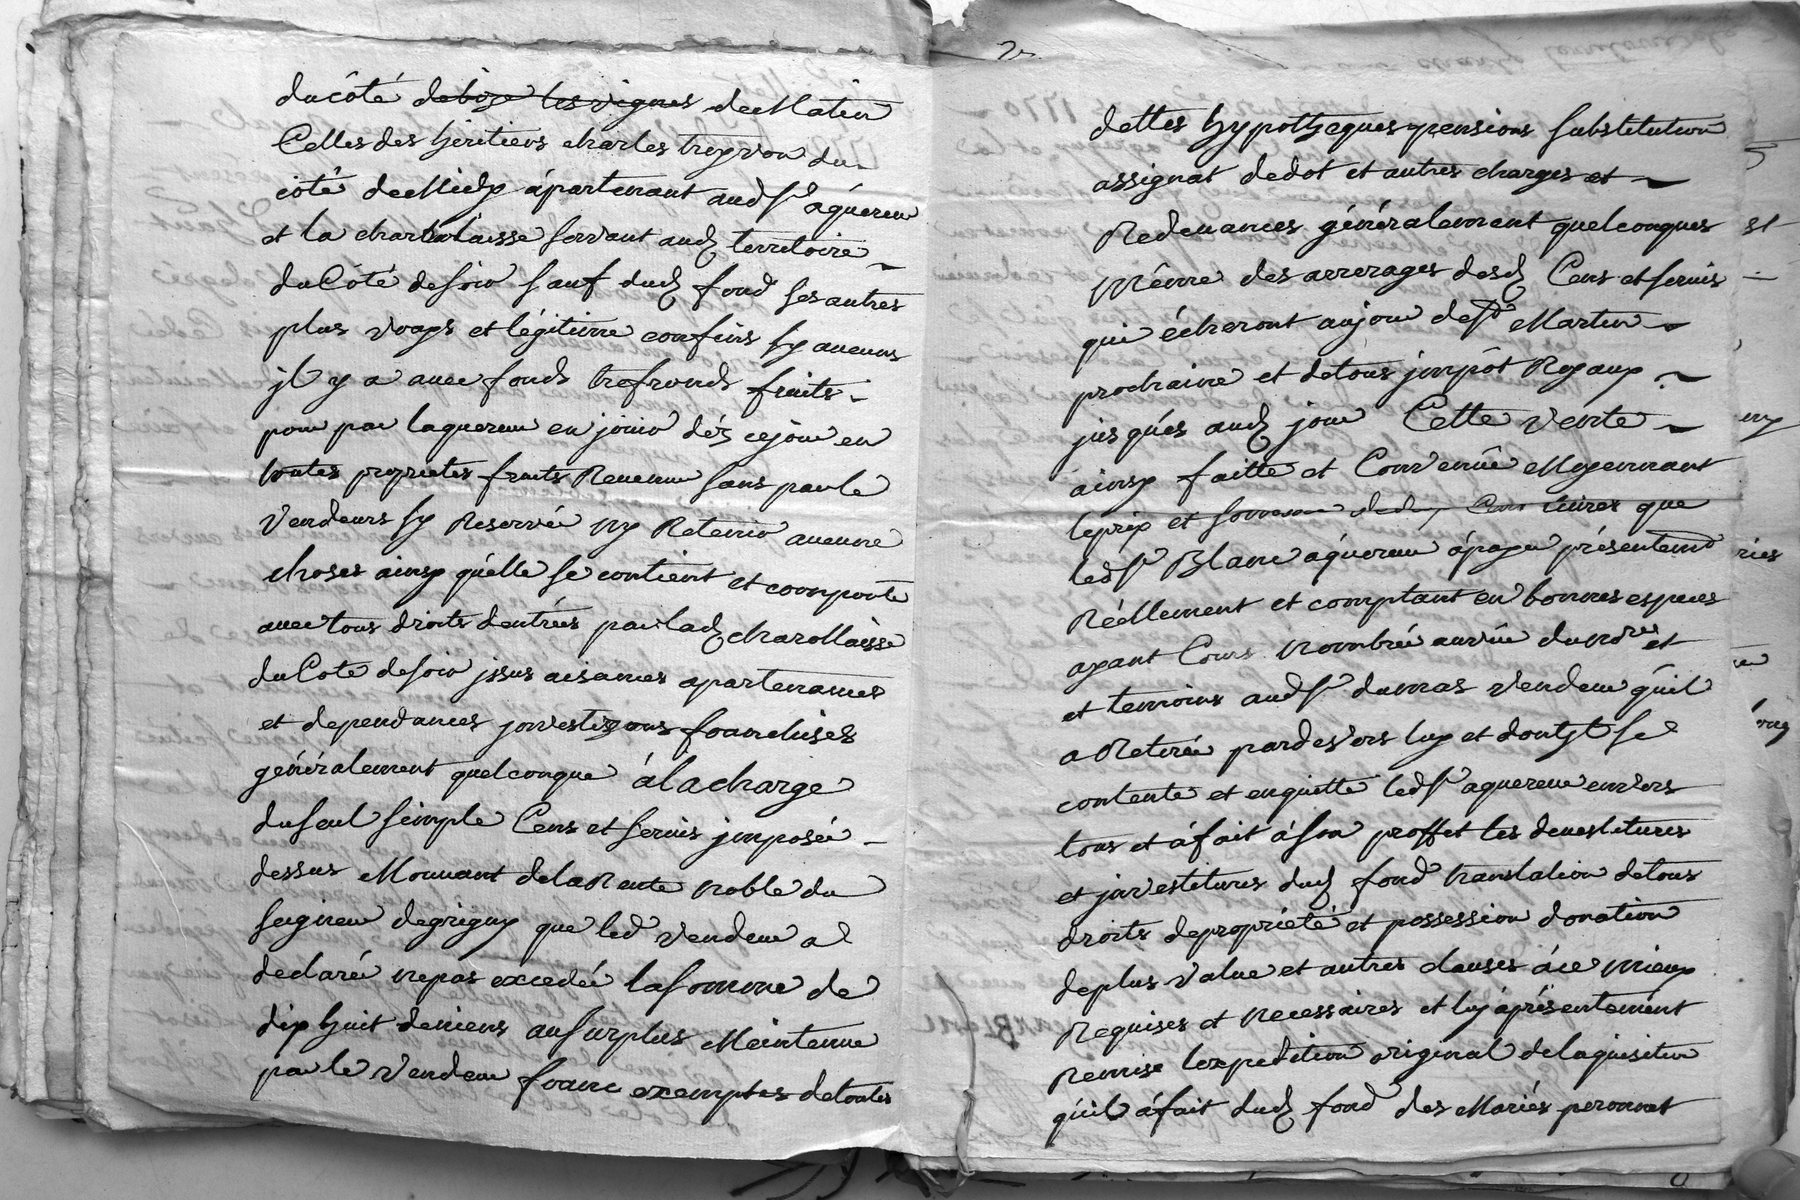 du côté de bize les vignes de Matin
Celles des hèritiers charles treyvon du
côté de Midy ápartenant aud Sr aquereur
et la charolaisse servant aud territoire
du Côté de soir sauf dud fond ses autres
plus vrays et légitime confins sy aucuns
jl y a avec fonds trefronds fruits
pour par laquereur en jouir dés ce jour en
toutes proprietes fruits Revenu sans par le
Vendeurs sy Reservér ny Retenir aucune
choses ainsy quélle se contient et comporte
avec tous droits dentrées par lad charollaisse
du Coté de soir jssus aisances apartenances
et dependances jnvestizons franchises
généralement quelconque á la charge
du seul simple Cens et servis jmposée
dessus Mouvant de la Rente noble du
seigneur de grigny que led vendeur a
declaré ne pas excedér la somme de
dix huit deniers au surplus Maintenue
par le vendeur franc exemptes de toutes
2
dettes hypothéques pensions substitution
assignat de dot et autres charges et
Redevances généralement quelconques
Même des arrerages desd Cens et servis
qui écheront au jour de St Martin
prochaine et de tous jmpôt Royaux
jusqués aud jour Cette vente
ainsy faitte et Convenûe Moyennant
le prix et somme de Cens livres que
led Sr Blanc aquereur á payer présentemt
Réellement et comptant en bonnes especes
ayant Cours nombrée au vûe du nore et
et temoins aud Sr dumas vendeur quil
a Retirée pardevers luy et dont jl se
contente et en quitte led Sr aquereur envers
tous et á fait á son proffet les devestitures
et jnvestitures dud fond translation de tous
droits de propriété et possession donation
de plus value et autres clauses á ce mieux
Requises et necessaires et luy á présentement
Remise lexpedition original de laquisition
quil á fait dud fond des Mariés peronnet